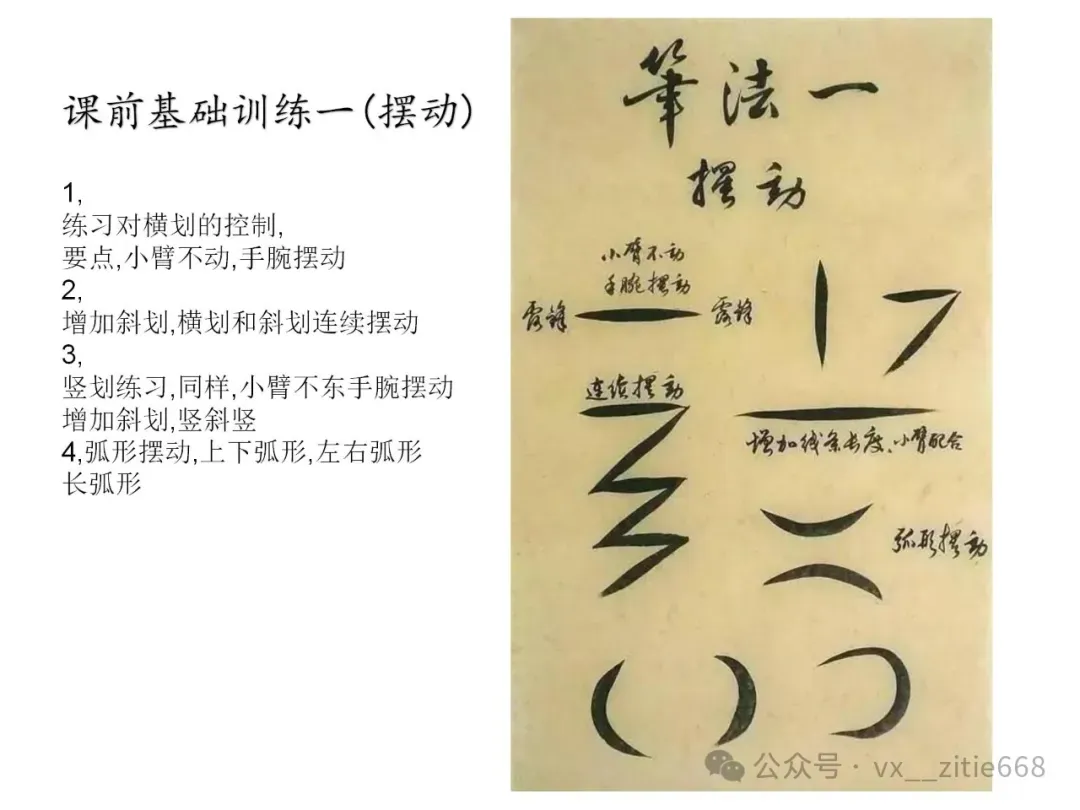 课前基础训练一(摆动)
1,
练习对横划的控制,
要点,小臂不动,手腕摆动
2,
增加斜划,横划和斜划连续摆动
3,
竖划练习,同样,小臂不东手腕摆动
增加斜划,竖斜竖
4,弧形摆动,上下弧形,左右弧形
长弧形
筆法一
擺動
小臂不动
手腕摆动
露锋
露锋
连续摆动
增加线条长度、小臂配合
弧形摆动
公众号 · vx__zitie668